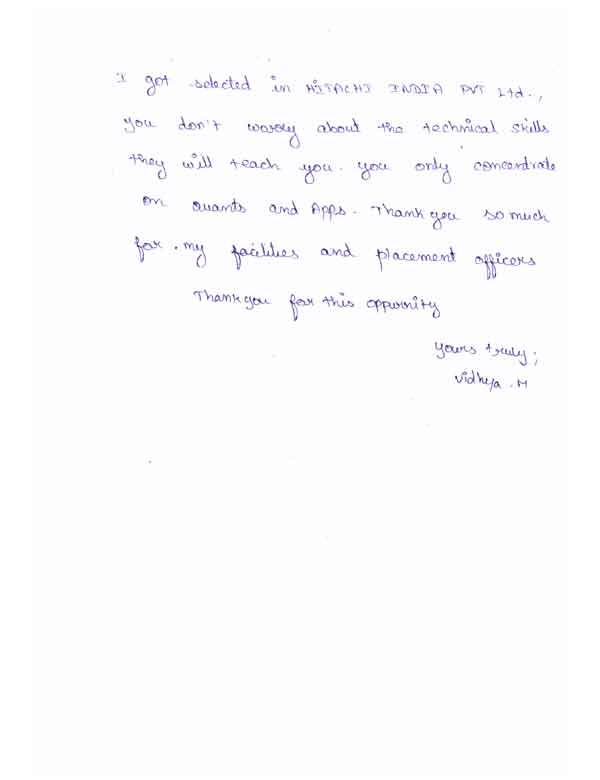 I got selected in HITACHI INDIA PVT Ltd.,
you don't worry about the technical skills
they will teach you. you only concentrate
on Quants and Apps. Thank you so much
for my facilities and placement officers
Thank you for this oppurnity
yours truly;
Vidhya . M